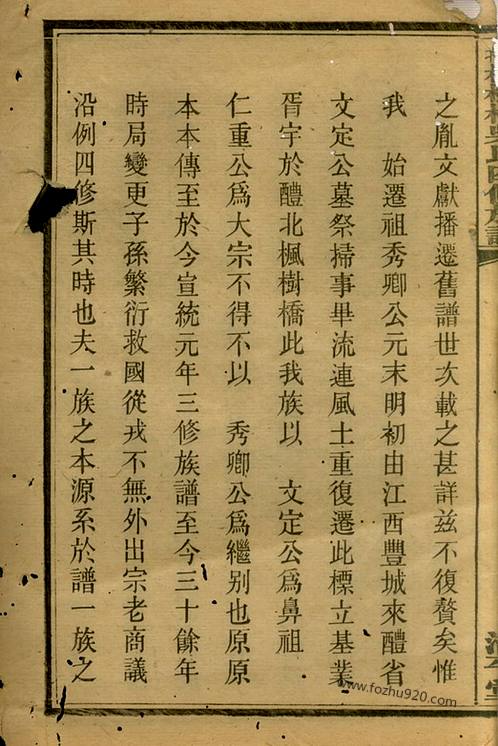 之胤文獻播遷舊譜世次載之甚詳茲不復贅矣惟
我　始遷祖秀卿公元末明初由江西豐城來醴省
文定公墓祭掃事畢流連風土重復遷此標立基業
胥宇於醴北楓樹橋此我族以　文定公爲鼻祖
仁重公爲大宗不得不以　秀卿公爲繼别也原原
本本傳至於今宣統元年三修族譜至今三十餘年
時局變更子孫繁衍救國從戎不無外出宗老商議
沿例四修斯其時也夫一族之本源系於譜一族之
www.fozhu920.com